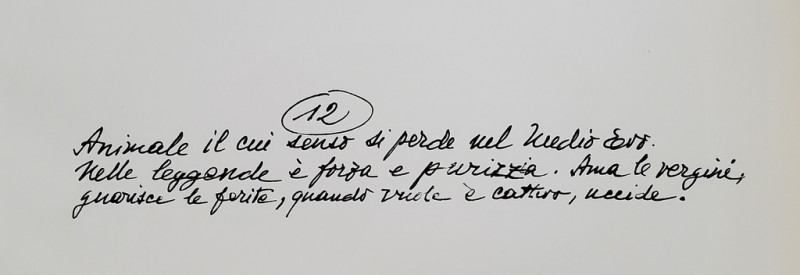 12
Animale il cui senso si perde nel Medio Evo.
Nelle leggende è forza e purizzia. Ama le vergini,
guarisce le ferite, quando vuole è cattivo, uccide.